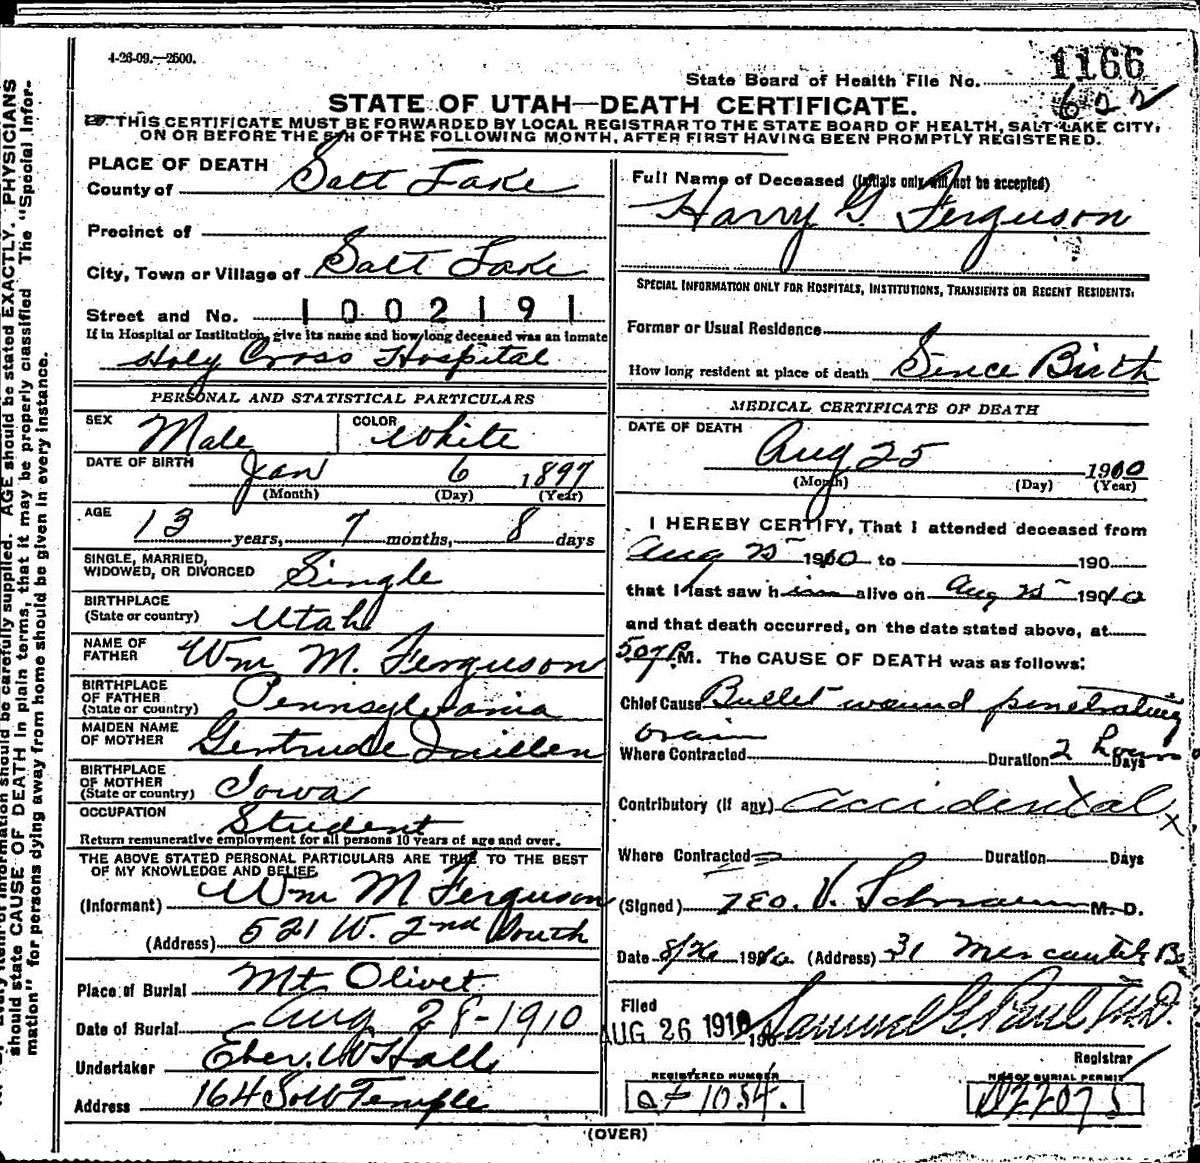 4-26-09.—2500.
State Board of Health File No. 1166
622
STATE OF UTAH—DEATH CERTIFICATE.
THIS CERTIFICATE MUST BE FORWARDED BY LOCAL REGISTRAR TO THE STATE BOARD OF HEALTH, SALT LAKE CITY,
ON OR BEFORE THE 5TH OF THE FOLLOWING MONTH, AFTER FIRST HAVING BEEN PROMPTLY REGISTERED.
PLACE OF DEATH
County of Salt Lake
Precinct of
City, Town or Village of Salt Lake
Street and No. 1002191
If in Hospital or Institution, give its name and how long deceased was an inmate
Holy Cross Hospital
PERSONAL AND STATISTICAL PARTICULARS
SEX Male COLOR White
DATE OF BIRTH Jan 6 1897
(Month) (Day) (Year)
AGE 13 years, 7 months, 8 days
SINGLE, MARRIED,
WIDOWED, OR DIVORCED Single
BIRTHPLACE
(State or country) Utah
NAME OF
FATHER Wm M. Ferguson
BIRTHPLACE
OF FATHER
(State or country) Pennsylvania
MAIDEN NAME
OF MOTHER Gertrude
BIRTHPLACE
OF MOTHER
(State or country) Iowa
OCCUPATION Student
Return remunerative employment for all persons 10 years of age and over.
THE ABOVE STATED PERSONAL PARTICULARS ARE TRUE TO THE BEST
OF MY KNOWLEDGE AND BELIEF.
(Informant) Wm M Ferguson
(Address) 521 W. 2nd South
Place of Burial Mt Olivet
Date of Burial Aug 28-1910
Undertaker Eber W Hall
Address 164 So W Temple
Full Name of Deceased (Initials only will not be accepted)
Harry G. Ferguson
SPECIAL INFORMATION ONLY FOR HOSPITALS, INSTITUTIONS, TRANSIENTS OR RECENT RESIDENTS:
Former or Usual Residence
How long resident at place of death Sence Birth
MEDICAL CERTIFICATE OF DEATH
DATE OF DEATH
Aug 25 1910
(Month) (Day) (Year)
I HEREBY CERTIFY, That I attended deceased from
Aug 25 1910 to 190
that I last saw him alive on Aug 25 1910
and that death occurred, on the date stated above, at
5.07 P.M. The CAUSE OF DEATH was as follows:
Chief Cause Bullet wound penetrating
brain
Where Contracted Duration 2 hours Days
Contributory (if any) accidental x
Where Contracted Duration Days
(Signed) Geo. V. M. D.
Date 8/26 1910 (Address) 31 Mercantile B
Filed
AUG 26 1910 190 Samuel G. Paul M.D.
Registrar
REGISTERED NUMBER
1054.
NO. OF BURIAL PERMIT
D22075
(OVER)
should be carefully supplied. AGE should be stated EXACTLY. PHYSICIANS
should state CAUSE OF DEATH in plain terms, that it may be properly classified. The "Special Infor-
mation" for persons dying away from home should be given in every instance.